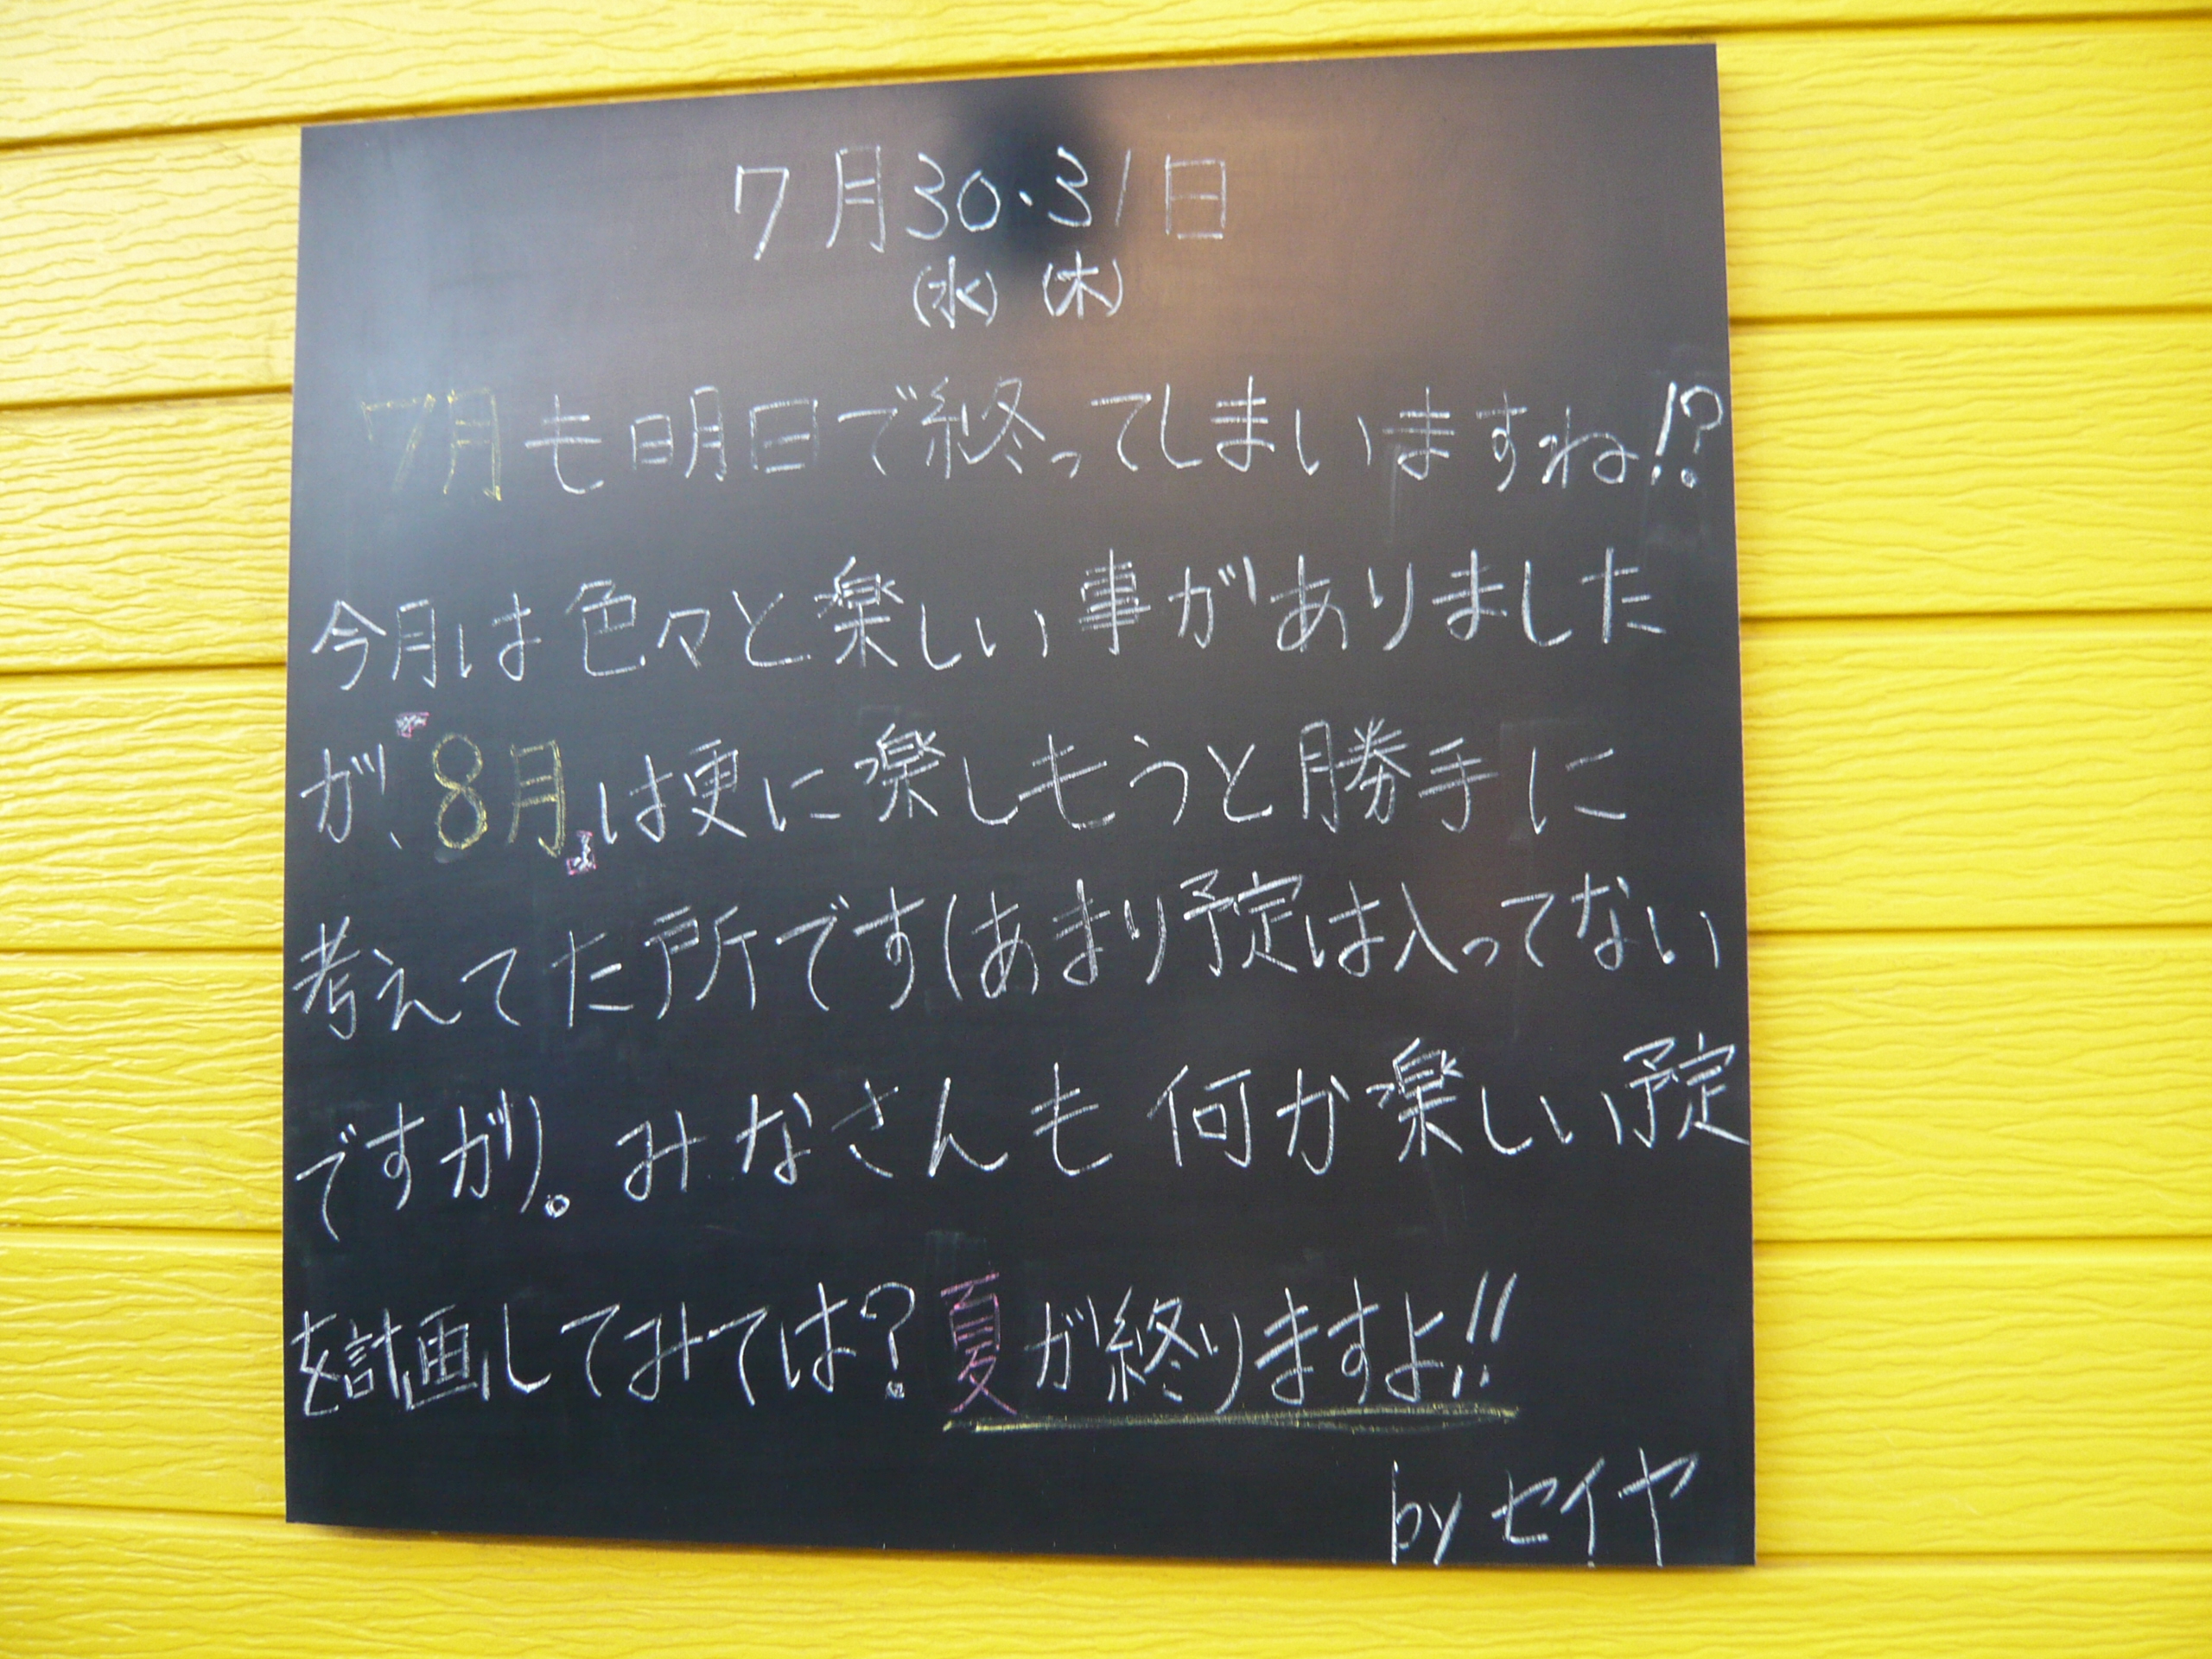 7月30・31日
(水) (木)
7月も明日で終ってしまいますね!?
今月は色々と楽しい事がありました
が、「8月」は更に楽しもうと勝手に
考えてた所です(あまり予定は入ってない
ですが)。みなさんも何か楽しい予定
を計画してみては?夏が終りますよ!!
by セイヤ